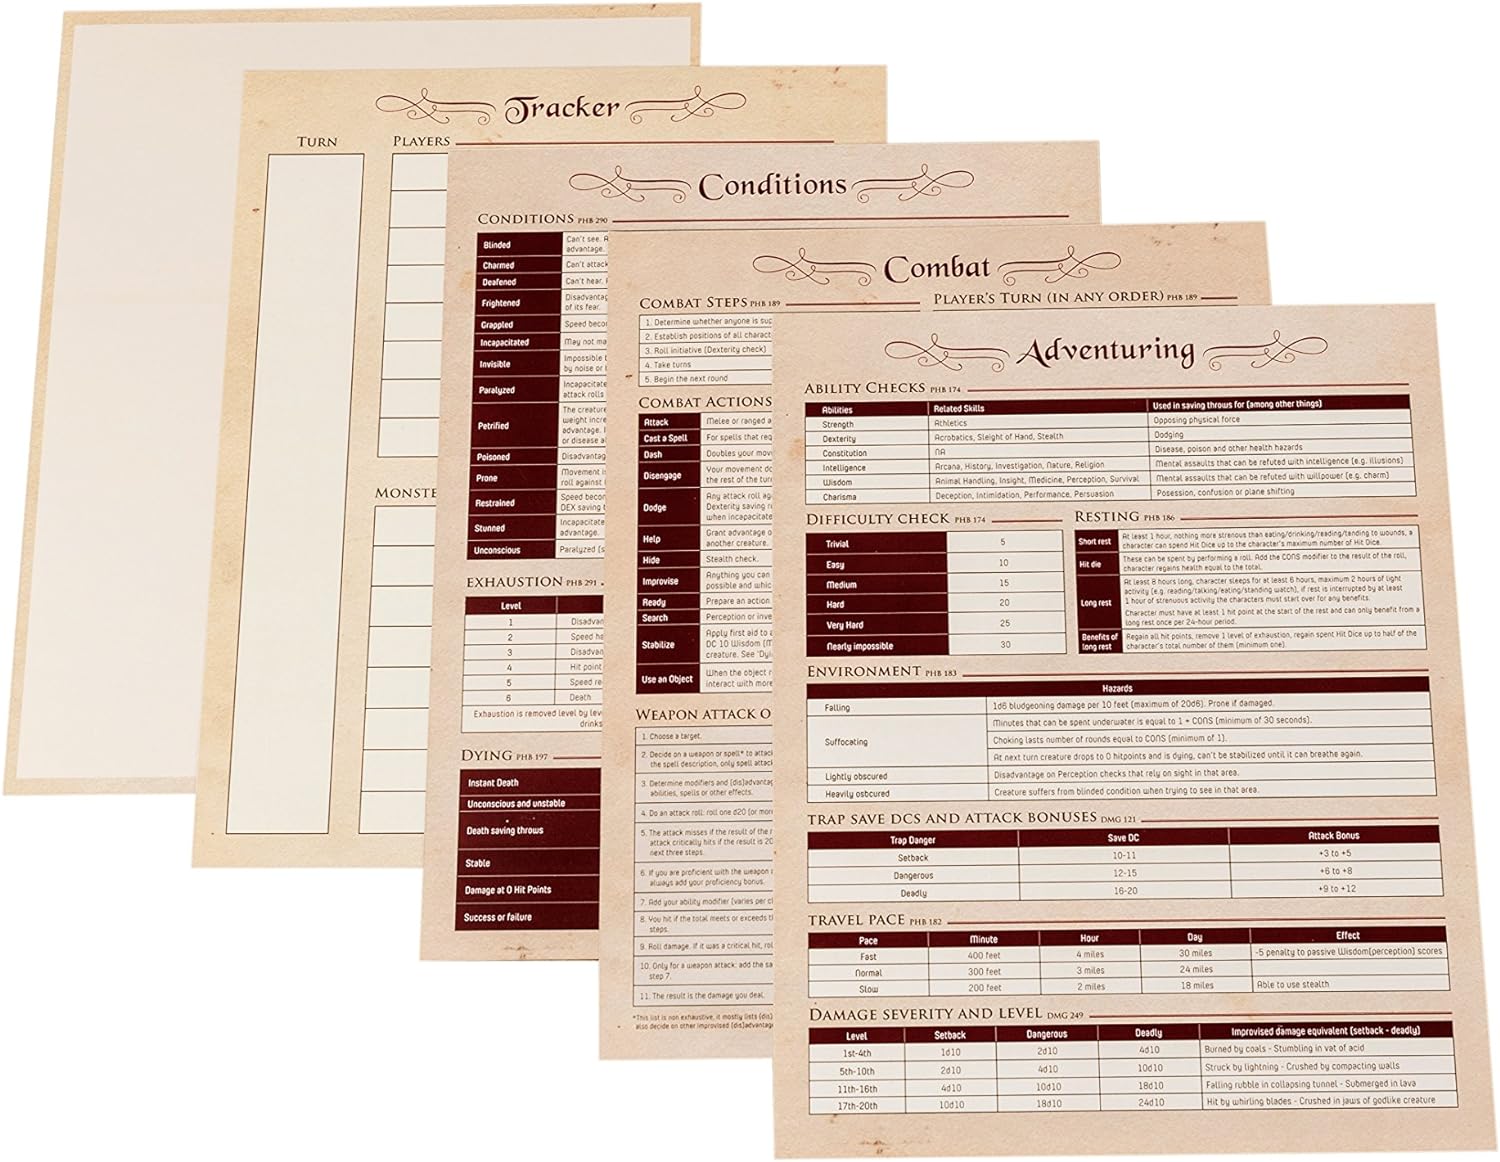 Tracker
TURN
PLAYERS
MONSTE
Conditions
CONDITIONS PHB 290
Blinded Can't see. A
advantage.
Charmed Can't attack
Deafened Can't hear.
Frightened Disadvantag
of its fear.
Grappled Speed becom
Incapacitated May not ma
Invisible Impossible t
by noise or
Paralyzed Incapacitate
attack rolls
Petrified The creature
weight incre
advantage.
or disease a
Poisoned Disadvantag
Prone Movement is
roll against
Restrained Speed becom
DEX saving t
Stunned Incapacitate
advantage.
Unconscious Paralyzed (s
EXHAUSTION PHB 291
Level
1 Disadvan
2 Speed ha
3 Disadvan
4 Hit point
5 Speed re
6 Death
Exhaustion is removed level by leve
drinks
DYING PHB 197
Instant Death
Unconscious and unstable
Death saving throws
Stable
Damage at 0 Hit Points
Success or failure
Combat
COMBAT STEPS PHB 189
1. Determine whether anyone is sup
2. Establish positions of all charact
3. Roll initiative (Dexterity check)
4. Take turns
5. Begin the next round
PLAYER'S TURN (IN ANY ORDER) PHB 189
COMBAT ACTIONS
Attack Melee or ranged a
Cast a Spell For spells that req
Dash Doubles your mov
Disengage Your movement do
the rest of the turn
Dodge Any attack roll aga
Dexterity saving r
when incapacitate
Help Grant advantage o
another creature.
Hide Stealth check.
Improvise Anything you can
possible and whic
Ready Prepare an action
Search Perception or inve
Stabilize Apply first aid to a
DC 10 Wisdom (M
creature. See 'Dyi
Use an Object When the object r
interact with more
WEAPON ATTACK O
1. Choose a target.
2. Decide on a weapon or spell* to attac
the spell description, only spell attack
3. Determine modifiers and (dis)advantag
abilities, spells or other effects.
4. Do an attack roll: roll one d20 (or mor
5. The attack misses if the result of the r
attack critically hits if the result is 20
next three steps.
6. If you are proficient with the weapon
always add your proficiency bonus.
7. Add your ability modifier (varies per cl
8. You hit if the total meets or exceeds t
steps.
9. Roll damage. If it was a critical hit, rol
10. Only for a weapon attack: add the sa
step 7.
11. The result is the damage you deal.
*This list is non exhaustive, it mostly lists (dis)
also decide on other improvised (dis)advantag
Adventuring
ABILITY CHECKS PHB 174
Abilities Related Skills Used in saving throws for (among other things)
Strength Athletics Opposing physical force
Dexterity Acrobatics, Sleight of Hand, Stealth Dodging
Constitution NA Disease, poison and other health hazards
Intelligence Arcana, History, Investigation, Nature, Religion Mental assaults that can be refuted with intelligence (e.g. illusions)
Wisdom Animal Handling, Insight, Medicine, Perception, Survival Mental assaults that can be refuted with willpower (e.g. charm)
Charisma Deception, Intimidation, Performance, Persuasion Posession, confusion or plane shifting
DIFFICULTY CHECK PHB 174
Trivial 5
Easy 10
Medium 15
Hard 20
Very Hard 25
Nearly impossible 30
RESTING PHB 186
Short rest At least 1 hour, nothing more strenous than eating/drinking/reading/tending to wounds, a
character can spend Hit Dice up to the character's maximum number of Hit Dice.
Hit die These can be spent by performing a roll. Add the CONS modifier to the result of the roll,
character regains health equal to the total.
Long rest At least 8 hours long, character sleeps for at least 6 hours, maximum 2 hours of light
activity (e.g. reading/talking/eating/standing watch), if rest is interrupted by at least
1 hour of strenuous activity the characters must start over for any benefits.
Character must have at least 1 hit point at the start of the rest and can only benefit from a
long rest once per 24-hour period.
Benefits of long rest Regain all hit points, remove 1 level of exhaustion, regain spent Hit Dice up to half of the
character's total number of them (minimum one).
ENVIRONMENT PHB 183
Hazards
Falling 1d6 bludgeoning damage per 10 feet (maximum of 20d6). Prone if damaged.
Suffocating Minutes that can be spent underwater is equal to 1 + CONS (minimum of 30 seconds).
Choking lasts number of rounds equal to CONS (minimum of 1).
At next turn creature drops to 0 hitpoints and is dying, can't be stabilized until it can breathe again.
Lightly obscured Disadvantage on Perception checks that rely on sight in that area.
Heavily osbcured Creature suffers from blinded condition when trying to see in that area.
TRAP SAVE DCS AND ATTACK BONUSES DMG 121
Trap Danger Save DC Attack Bonus
Setback 10-11 +3 to +5
Dangerous 12-15 +6 to +8
Deadly 16-20 +9 to +12
TRAVEL PACE PHB 182
Pace Minute Hour Day Effect
Fast 400 feet 4 miles 30 miles -5 penalty to passive Wisdom(perception) scores
Normal 300 feet 3 miles 24 miles
Slow 200 feet 2 miles 18 miles Able to use stealth
DAMAGE SEVERITY AND LEVEL DMG 249
Level Setback Dangerous Deadly Improvised damage equivalent (setback - deadly)
1st-4th 1d10 2d10 4d10 Burned by coals - Stumbling in vat of acid
5th-10th 2d10 4d10 10d10 Struck by lightning - Crushed by compacting walls
11th-16th 4d10 10d10 18d10 Falling rubble in collapsing tunnel - Submerged in lava
17th-20th 10d10 18d10 24d10 Hit by whirling blades - Crushed in jaws of godlike creature